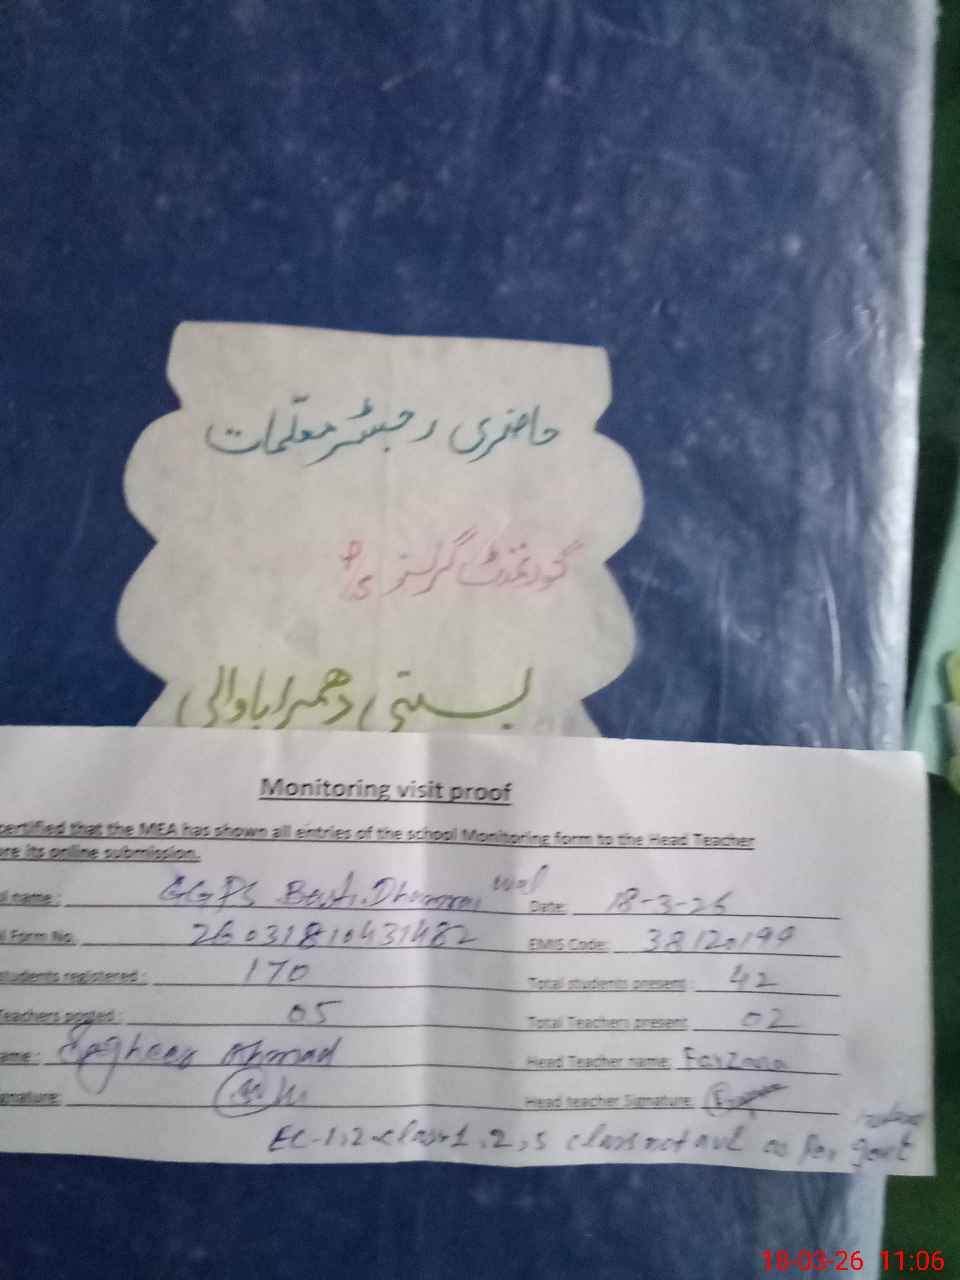 حاضری رجسٹر معلّمات
گورنمنٹ گرلز P/S
بستی دھمرایاوالی
Monitoring visit proof
certified that the MEA has shown all entries of the school Monitoring form to the Head Teacher
ore its online submission.
l name: GGPS Basti Dhamrai wal Date: 18-3-26
l Form No. 26031810431482 EMIS Code: 38120199
students registered: 170 Total students present: 42
Teachers posted: 05 Total Teachers present 02
ame: Sagheer Ahmad Head Teacher name: Farzana
gnature: Head teacher Signature:
EC-1,2 class 1, 2, 5 class not avl as per govt
18-03-26 11:06